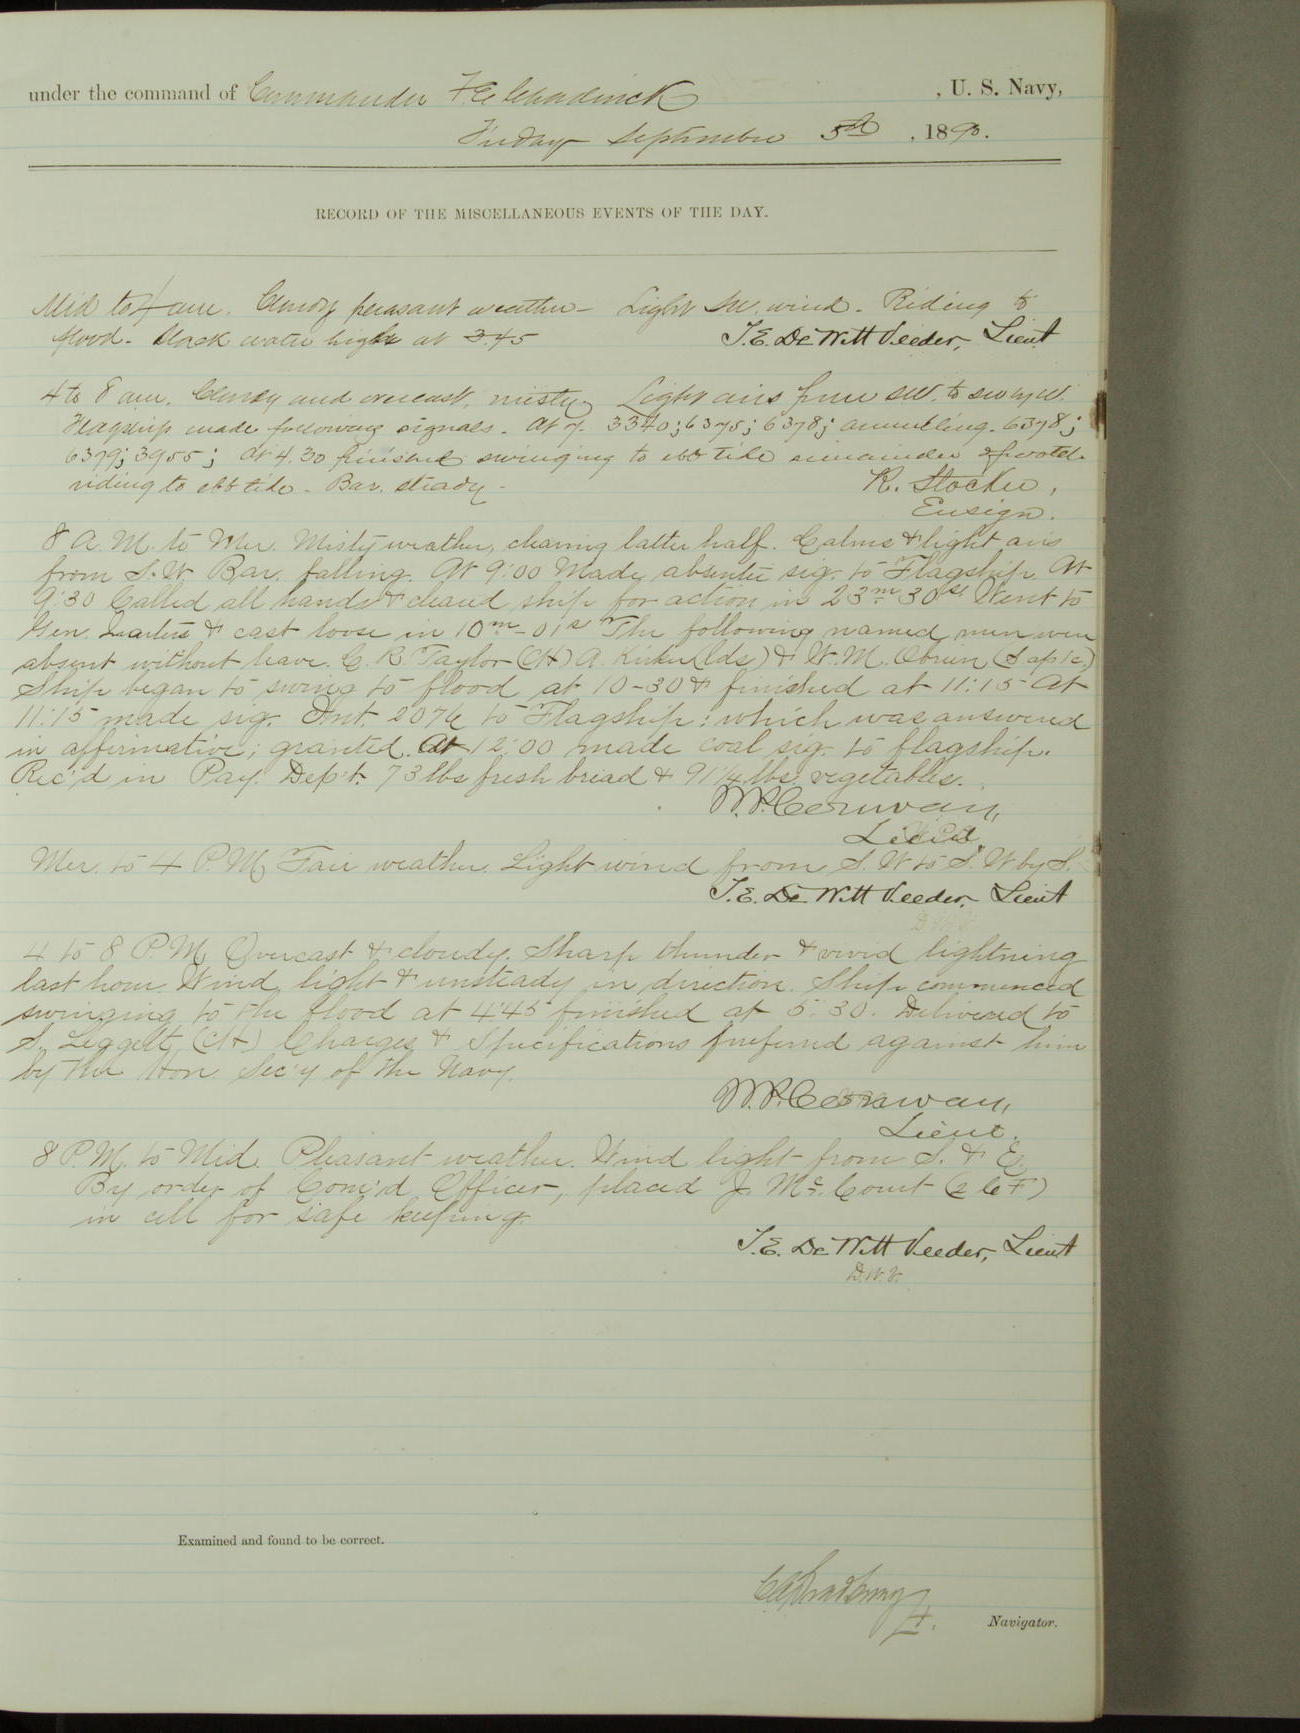 under the command of Commander F.E. Chadwick , U. S. Navy,
Friday September 5th , 1890.
RECORD OF THE MISCELLANEOUS EVENTS OF THE DAY.
Mid to 4 am. Cloudy pleasant weather - Light SW. wind. Riding to
flood. Slack water high at 3.45
T.E. De Witt Veeder, Lieut
4 to 8 am. Cloudy and overcast, misty. Light airs from SW. to SW by W.
Flagship made following signals. At 7. 3340; 6375; 6378; annulling 6378;
6379; 3955; At 4.30 finished swinging to ebb tide remainder of watch
riding to ebb tide - Bar. steady -
R. Stocker,
Ensign.
8 A.M. to Mer. Misty weather, clearing latter half. Calms & light airs
from S.W. Bar. falling. At 9:00 Made absentee sig. to Flagship. At
9:30 Called all hands & cleared ship for action in 23m 30s Went to
Gen. Quarters & cast loose in 10m-01s The following named men were
absent without leave. C. R. Taylor (CH) A. Kirker (lds) & W.M. Obrien (S ap 1c.)
Ship began to swing to flood at 10-30 & finished at 11:15 At
11:15 made sig. Ant. 2076 to Flagship: which was answered
in affirmative; granted. At 12:00 made coal sig. to flagship.
Rec'd in Pay. Dep't. 73 lbs fresh bread & 91 1/4 lbs. vegetables.
W.P. Conway,
Lieut.
Mer. to 4 P.M. Fair weather. Light wind from S.W to S.W by S.
T.E. De Witt Veeder, Lieut
4 to 8 P.M. Overcast & cloudy. Sharp thunder & vivid lightning
last hour. Wind light & unsteady in direction. Ship commenced
swinging to the flood at 4:45 finished at 5:30. Delivered to
S. Leggett (CH) Charges & Specifications preferred against him
by the Hon. Sec'y of the Navy.
W.P. Conway,
Lieut.
8 P.M. to Mid. Pleasant weather. Wind light from S. & E.
By order of Com'd Officer, placed J. Mc. Court (2 C F)
in cell for safe keeping.
T.E. De Witt Veeder, Lieut
D.W.V.
Examined and found to be correct.
Navigator.